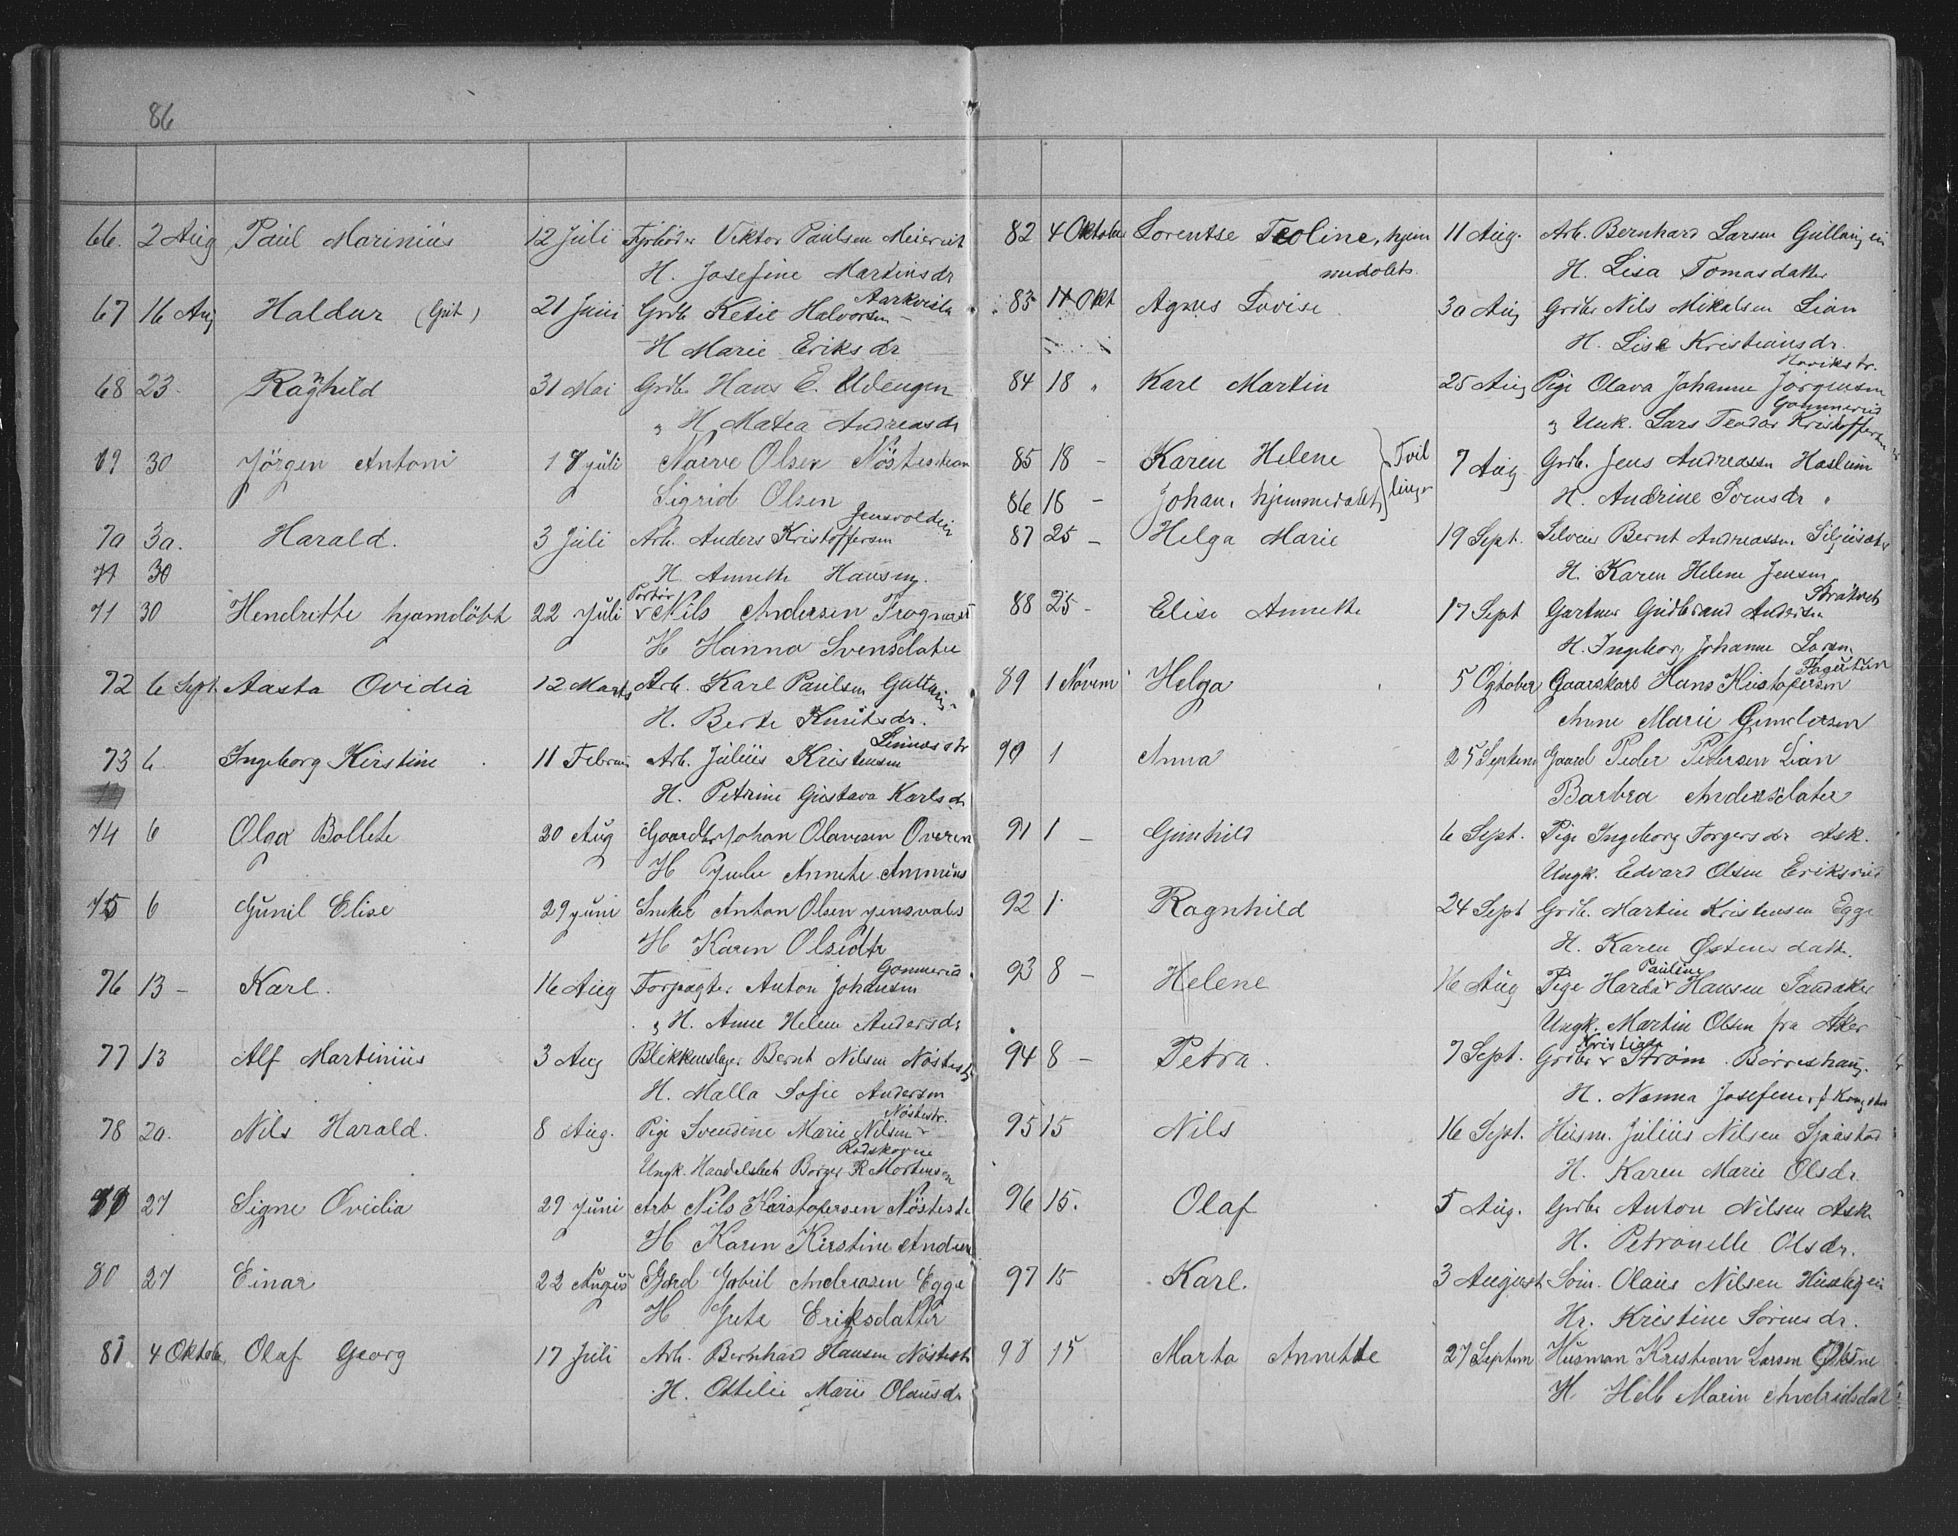 86
66. 2 Aug Paul Marinius 12 Juli Fyrböder Viktor Paulsen Meieriet
H. Josefine Martinsdr
67 16 Aug Haldur (Gut) 21 Juni Grdb. Ketil Halvorsen Aarkvisla
H Marie Eriksdr
68 23. Ragnhild 31 Mai Grdb. Hans E. Udengen
" H. Matea Andreasdr
69 30 Jörgen Antoni 18 juli Narve Olsen Nöstestran
Sigrid Olsen
70 30. Harald. 3 Juli Arb. Anders Kristoffersen Jensvoldein
71 30 H. Annethe Hansen
71 30 Hendrette hjemdöbt 22 Juli Portör Nils Andersen Trognæs
H Hanna Svensdater
72 6 Sept. Aasta Ovidia 12 Marts Arb. Karl Paulsen Gulhaug
H. Berte Knutsdr.
73 6 Ingeborg Kirstine 11 Februar Arb. Julius Kristensen Linnesstr
H. Petrine Gustava Karlsdr
74 6 Olga Bollete 20 Aug Gaardbr Johan Olavesen Overen
H Julie Annete Ammuns
75 6 Gunil Elise 29 juni Snekr Anton Olsen jensvoles
H Karen Olsedtr
76 13 - Karl. 16 Aug Forpagter Anton Johansen Gommerud
" H. Anne Helene Andersdr
77 13 Alf Martinius 3 Aug Blikkenslager Bernt Nilsen Nöstestr
H. Malla Sofie Andersen
78 20. Nils Harald. 8 Aug. Pige Svendine Marie Nilsen Nöstestr.
Ungk. Handelsbetj Borger R Mortensen Rodskovne
79 27 Signe Ovidia 29 Juni Arb Nils Kristofersen Nöstestr
H Karen Kirstine Andrea
80 27 Einar 22 August Gard Gabriel Andreasen Egge
H Grete Eriksdatter
81 4 Oktob. Olaf Georg 17 Juli Arb. Bernhard Hansen Nöstestr
H. Ottilie Marie Olausdr
82 4 Oktober Lorentse Teoline, hjem 11 Aug. Arb. Bernhard Larsen Gullaugein
medobts. H. Lisa Tomasdatter
83 11 Okt Agnes Lovise 30 Aug Grdbr Nils Mikalsen Lian
H. Lise Kristiansdr.
84 18 " Karl Martin 25 Aug Pige Olava Johanne Jörgensen Havikstr.
" Unk. Lars Teodor Kristoffersen Gommerud
85 18 - Karen Helene } Tvil 7 Aug Grdb. Jens Andreassen Haslum
86 18 - Johan, hjemmedobt } linger H. Andrine Svensdr "
87 25 - Helga Marie 19 Sept. Selveier Bernt Andreassen Siljusæter
H. Karen Helene Jensen
88 25 - Elise Annette 17 Sept Gartner Gudbrand Andersen
H. Ingeborg Johanne Lorsen
89 1 Novem Helga 5 Ogtober Gaarskarl Hans Kristofersen Fagertun
Anne Marie Gundersen
90 1 Anna 25 Septem Gaard Peder Pedersen Lian
Barbra Andersdater
91 1 - Gunhild 6 Sept. Pige Ingeborg Torgersdr Ask.
Ungk. Edvard Olsen Eriksrud
92 1 Ragnhild 24 Sept Grdb. Martin Kristensen Egge
H. Karen Østensdatt.
93 8 - Helene 16 Aug Pige Harda Pauline Hansen Sandaker
Ungk. Martin Olsen fra Aker
94 8 - Petra. 7 Sept. Grdbr Kristian Strøm. Börreshaug.
H. Nanna Josefine, f. Krogstad
95 15 Nils 16 Sept. Husm. Julius Nilsen Sjåstad
H. Karen Marie Olsdr.
96 15. Olaf 5 Aug. Grdbr Anton Nilsen Ask
H. Petronelle Olsdr.
97 15 Karl. 3 August Søm. Olaus Nilsen
Hr. Kristine Sörensdr.
98 15 Marta Annette 27 Septem Husman Kristian Larsen
H Marin